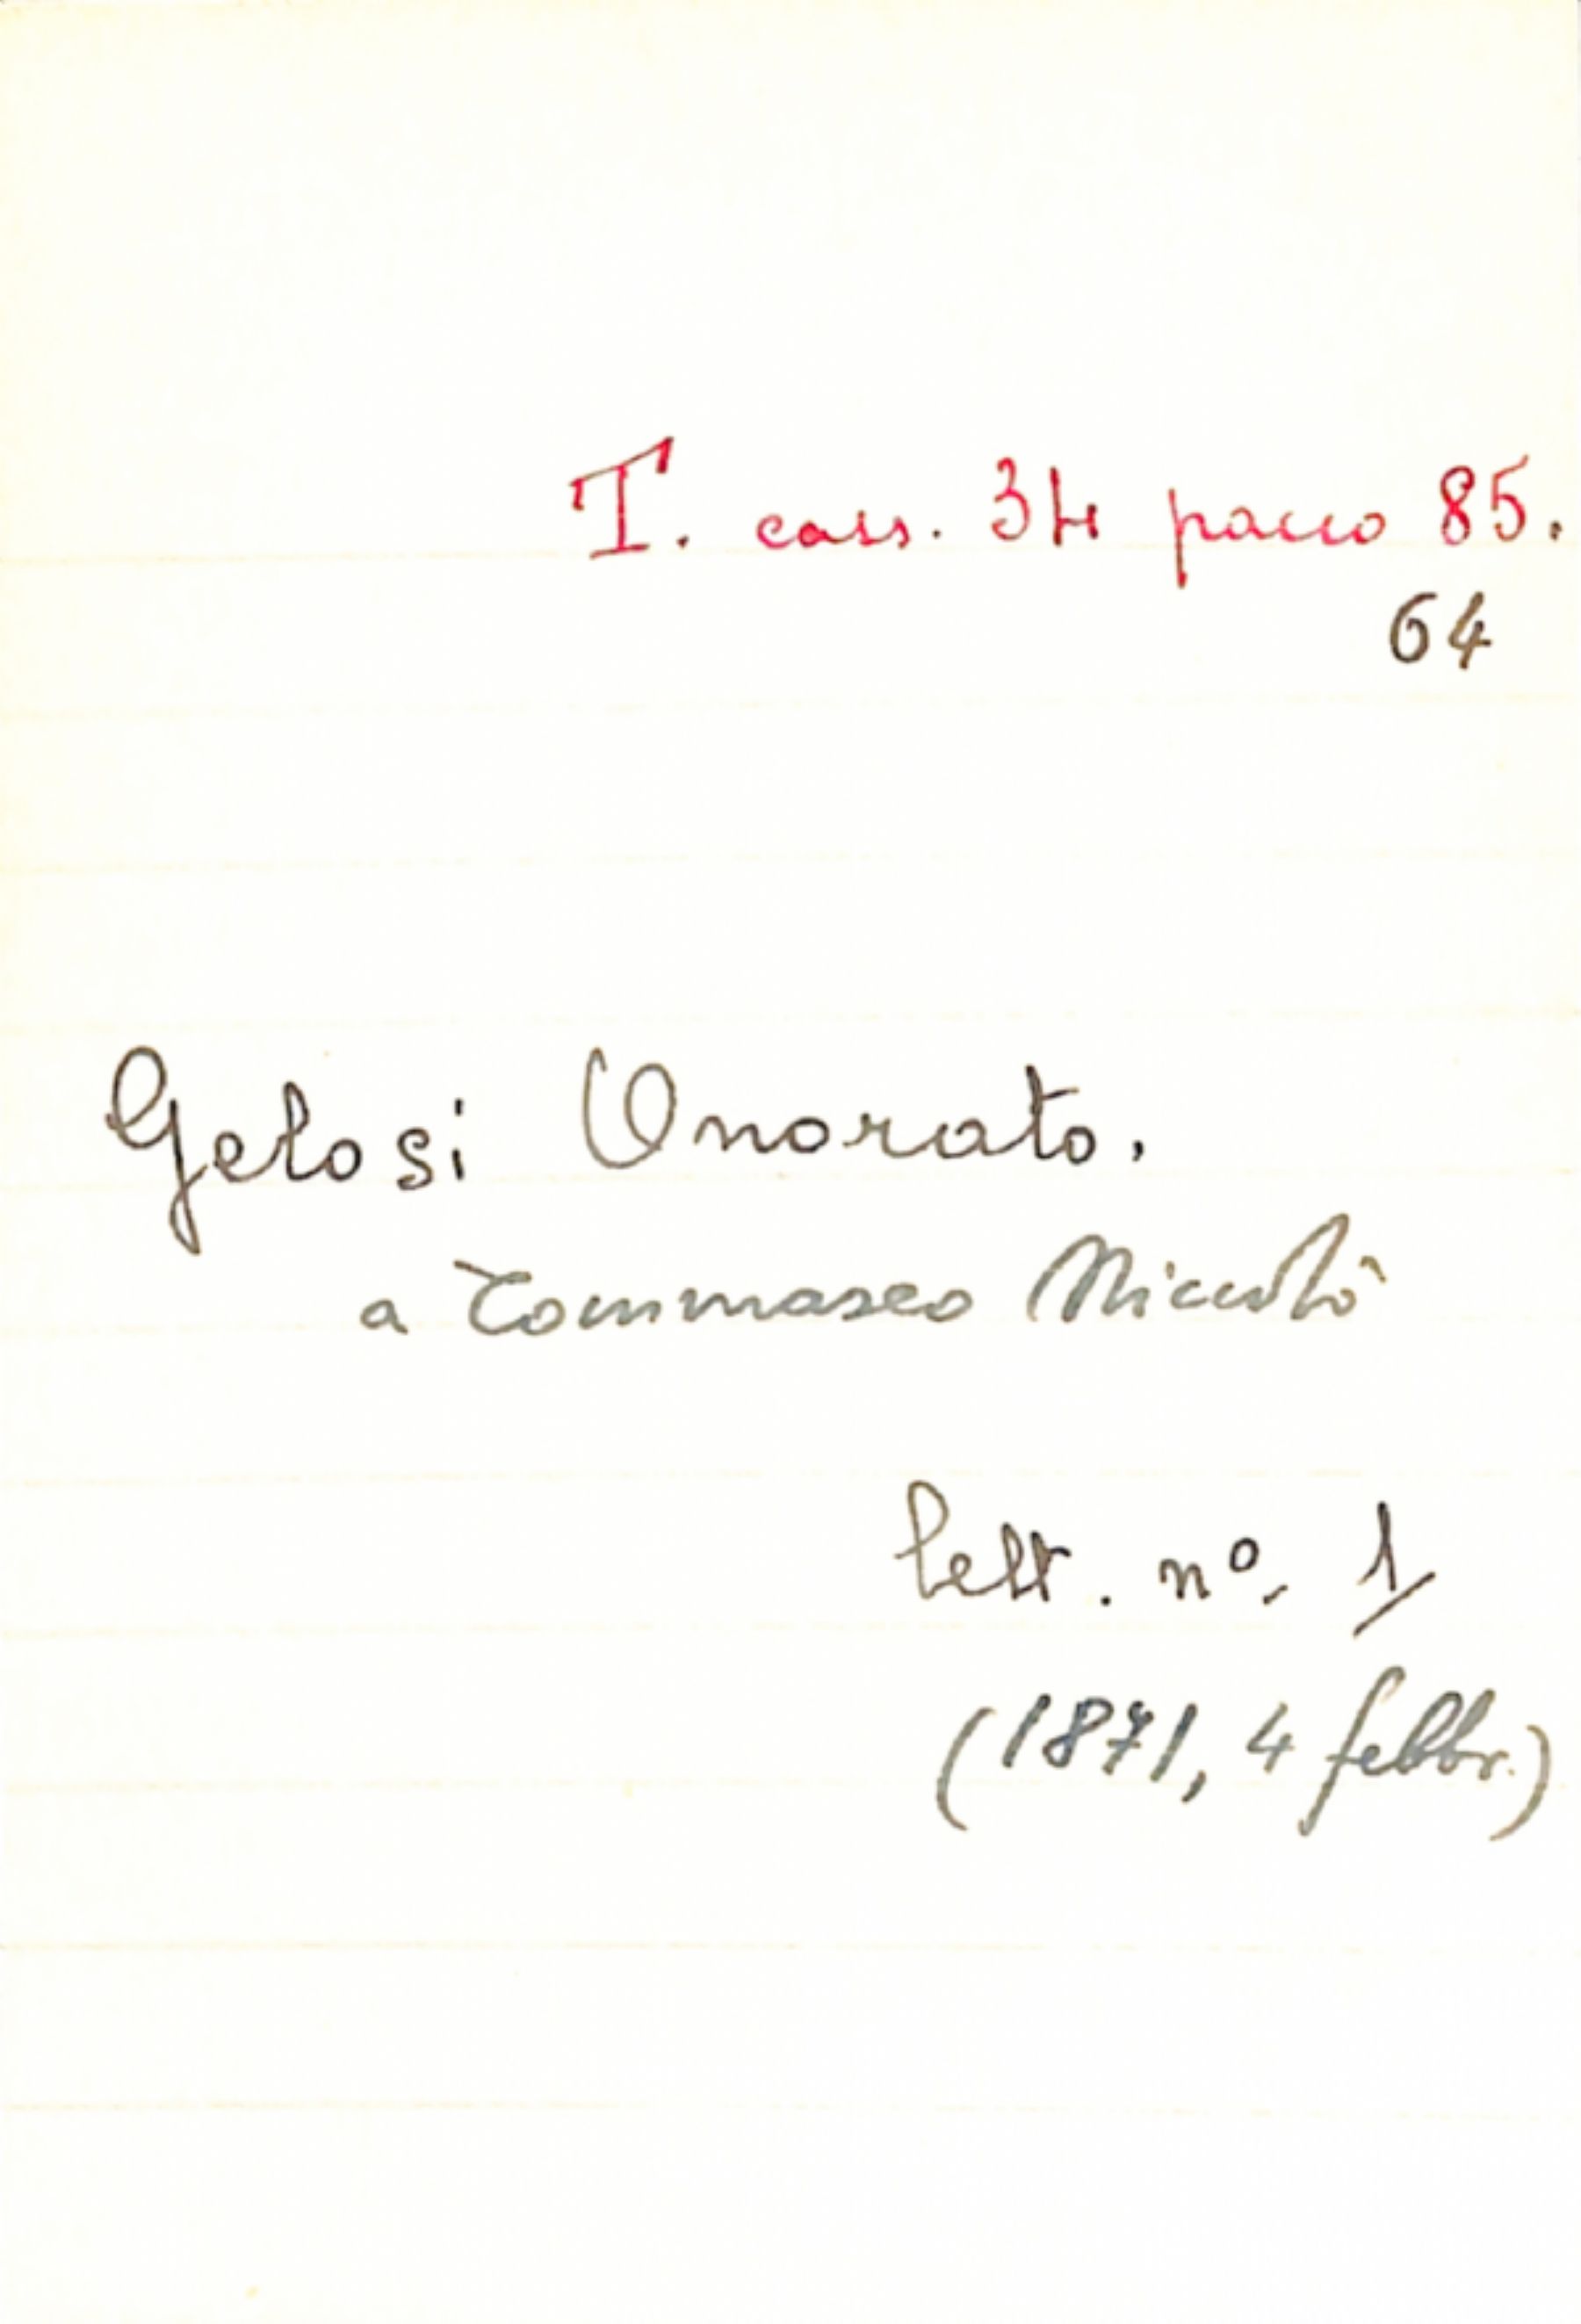 T. cass. 34 pacco 85.
64
Gelosi Onorato.
a Tommaseo Niccolò
lett. nº. 1
(1871, 4 febbr.)